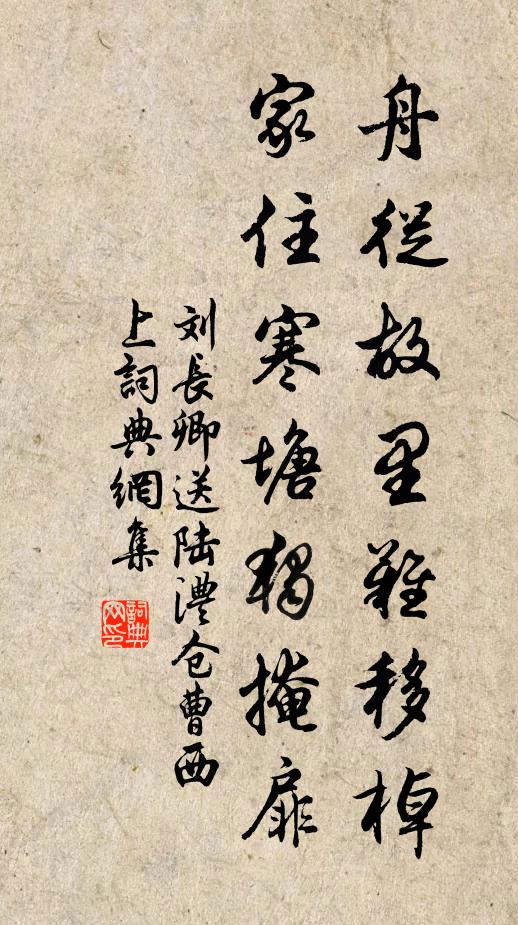 舟從故里難移棹
家住寒塘獨掩扉
刘長卿送陆澧仓曹西
上詞典網集
詞典
网印